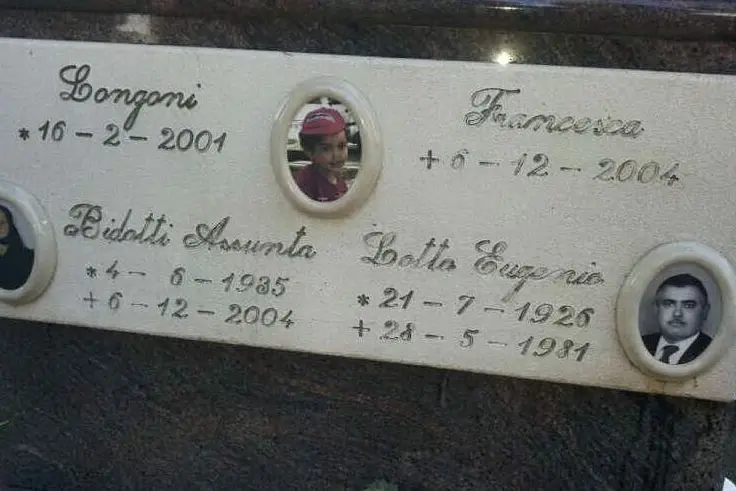 Longoni
Francesca
*16-2-2001
+6-12-2004
Bidotti Assunta
*4-6-1935
+6-12-2004
Lotta Eugenio
*21-7-1926
+28-5-1981